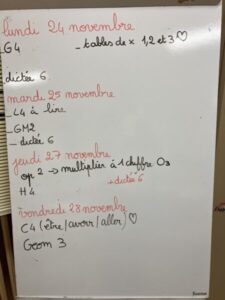 lundi 24 novembre
G4 - tables de x 1,2 et 3 ♡
dictée 6
mardi 25 novembre
- L4 à lire
- GM2
- dictée 6
jeudi 27 novembre
op 2 → multiplier à 1 chiffre
+ dictée 6
H4
vendredi 28 novembre
C4 (être/avoir/aller) ♡
Geom 3